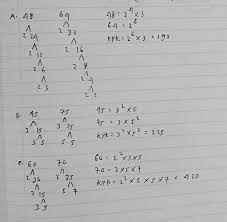 A. 48 64 48 = 2⁴ x 3
2 24 2 32 64 = 2⁶
2 12 2 16 KPK = 2⁶ x 3 = 192
2 6 2 8
2 3 2 4
2 2
B. 45 75 45 = 3² x 5
3 15 3 25 75 = 3 x 5²
3 5 5 5 KPK = 3² x 5² = 225
C. 60 70 60 = 2² x 3 x 5
2 30 2 35 70 = 2 x 5 x 7
2 15 5 7 KPK = 2² x 3 x 5 x 7 = 420
3 5